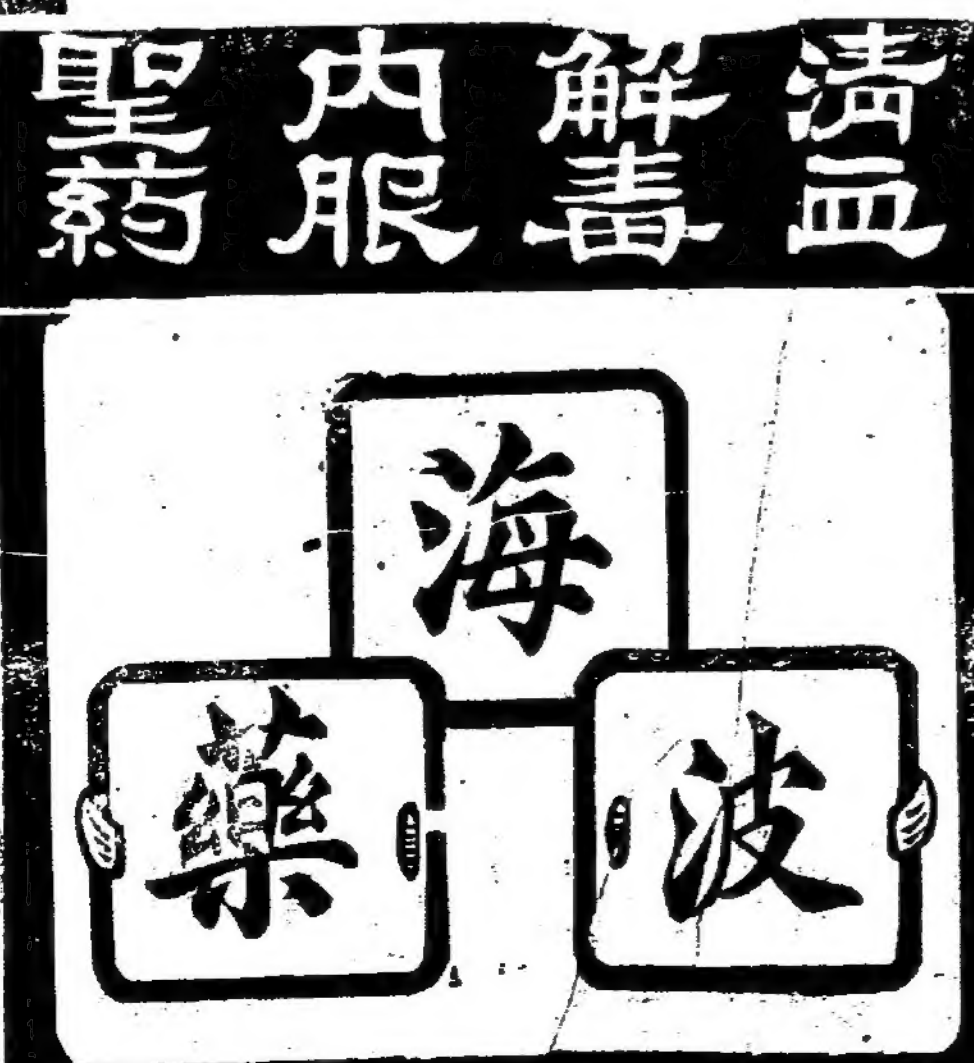 清血
解毒
内服
聖葯
海波藥